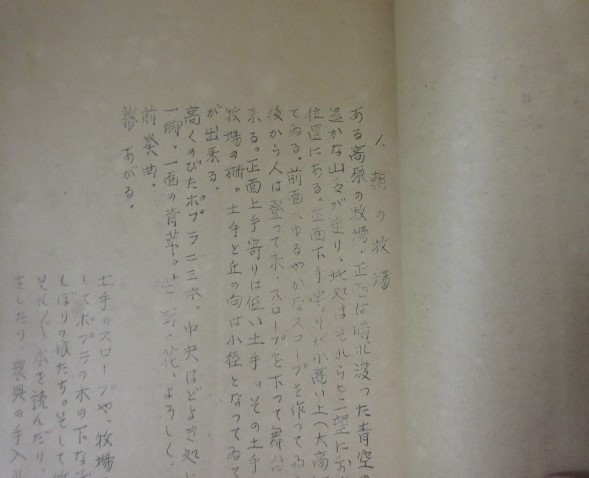 1. 朝の牧場
ある高原の牧場、正面は晴れ渡った青空の
遥かな山々が連り、此処はそれらを一望にお
位置にある。正面下手寄りが小高い丘
てゐる。前面へゆるやかなスロープを作ってゐる
後から人は登って来、スロープを下って舞台
来る。正面上手寄りは低い土手。その土手
牧場の柵。土手と丘の向は小径となってゐて
が出来る。
高くのびたポプラ二三本。中央ほどよき処に
一脚。一面の青草。花、よろしく。
前奏曲。
幕あがる。
土手のスロープや、牧場
してポプラの木の下な
しぼりの娘たち。そして
それぞれ本を読んだり、
をしたり、農具の手入